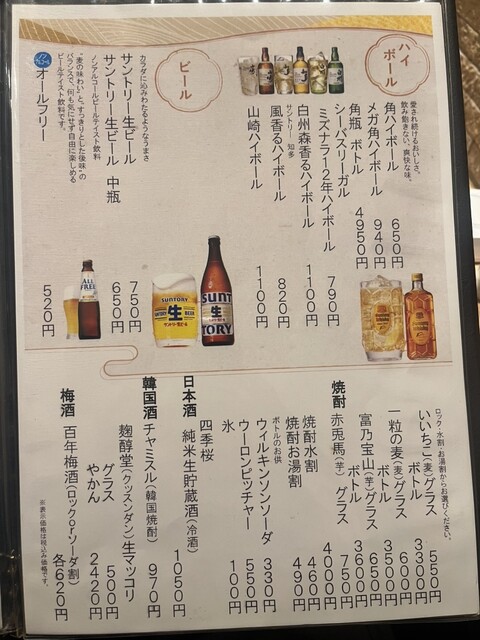 ハイボール
愛され続けるおいしさ。
飲み飽きない、爽快な味。
角ハイボール 650円
メガ角ハイボール 940円
角瓶 ボトル 4950円
シーバスリーガル
ミズナラ12年ハイボール 790円
白州森香るハイボール 1100円
サントリー 知多
風香るハイボール 820円
山崎ハイボール 1100円
ビール
カラダに沁みわたるようなうまさ
サントリー生ビール 750円
サントリー生ビール 中瓶 650円
ノンアルコールビールテイスト飲料
"麦の味わい"と、すっきりとした後味"の
バランスで、何も気にせず自由に楽しめる
ビールテイスト飲料です。
オールフリー 520円
ALL FREE
SUNTORY
生
BEER
SUNTORY
生
ロック・水割・お湯割からお選びください。
焼酎
いいちこ(麦)グラス 550円
ボトル 3300円
一粒の麦(麦)グラス 600円
ボトル 3500円
富乃宝山(芋)グラス 650円
ボトル 3600円
赤兎馬(芋)グラス 750円
ボトル 4000円
焼酎水割 460円
焼酎お湯割 490円
ボトルのお供
ウィルキンソンソーダ 330円
ウーロンピッチャー 550円
氷 100円
日本酒
四季桜
純米生貯蔵酒(冷酒) 1050円
韓国酒
チャミスル(韓国焼酎) 970円
麹醇堂(クッスンダン)生マッコリ
グラス 500円
やかん 2420円
梅酒
百年梅酒(ロックorソーダ割) 各620円
※表示価格は税込み価格です。